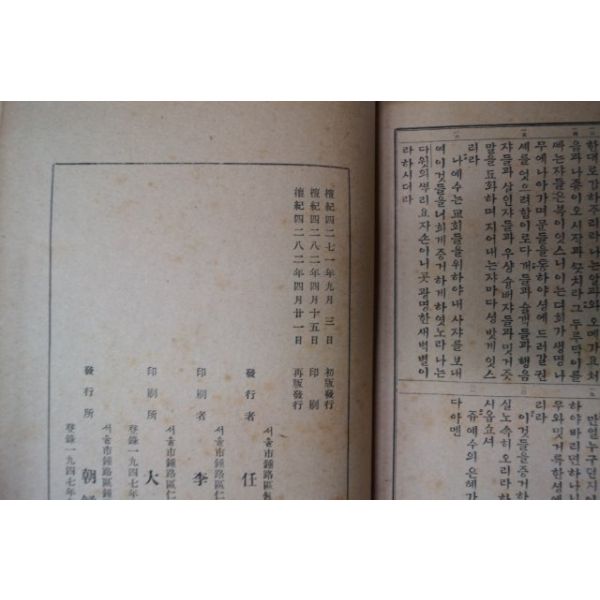 한대로갑하주리라나는알파와오메가요처
음과나죵이오시작과끗치라그두루막이를
빠는쟈들은복이잇스니이는뎌희가생명나
무에나아가며문들을통하야셩에드러갈권
셰를엇으려함이로다개들과술객들과행음
쟈들과살인쟈들과우상숭배쟈들과밋거즛
말을됴화하며지어내는쟈마다셩밧게잇스
리라
나예수는교회들을위하야내사쟈를보내
여이것들을너희게증거하게하엿노라나는
다윗의뿌리요자손이니곳광명한새벽별이
라하시더라
만일누구던지이
하야바리면하나님
우와밋거룩한셩에
리라
이것들을증거하
실노속히오리라하
시옵쇼셔
쥬예수의은혜가
다아멘
檀紀四二七一年九月三日 初版發行
檀紀四二八二年四月十五日 印刷
檀紀四二八二年四月廿一日 再版發行
서울市鍾路區
發行者 任
서울市鍾路區仁
印刷者 李
서울市鍾路區仁
印刷所 大
登錄一九四七年
서울市鍾路區
發行所 朝
登錄一九四七年